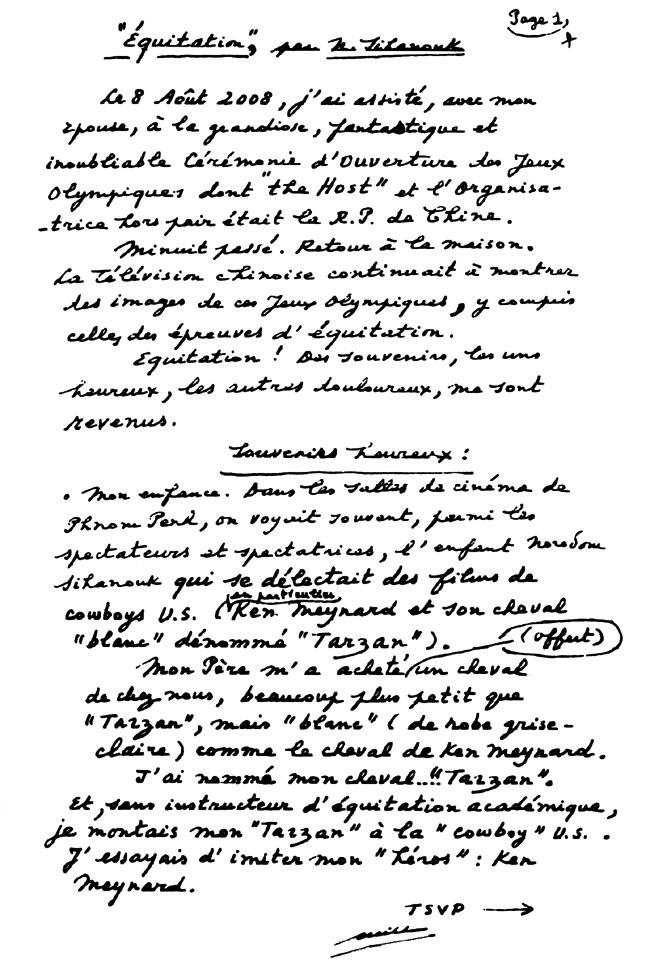 Page 1,
"Équitation", par N. Sihanouk
Le 8 Août 2008, j'ai assisté, avec mon
épouse, à la grandiose, fantastique et
inoubliable Cérémonie d'Ouverture des Jeux
Olympiques dont "the Host" et l'Organisa-
-trice hors pair était la R.P. de Chine.
Minuit passé. Retour à la maison.
La Télévision chinoise continuait à montrer
des images de ces Jeux Olympiques, y compris
celles des épreuves d'équitation.
Equitation ! Des souvenirs, les uns
heureux, les autres douloureux, me sont
revenus.
Souvenirs heureux :
• Mon enfance. Dans les salles de cinéma de
Phnom Penh, on voyait souvent, parmi les
spectateurs et spectatrices, l'enfant Norodom
Sihanouk qui se délectait des films de
en particulier
cowboys U.S. (Ken Meynard et son cheval
"blanc" dénommé "Tarzan").
(offert)
Mon Père m'a acheté un cheval
de chez nous, beaucoup plus petit que
"Tarzan", mais "blanc" (de robe grise-
claire) comme le cheval de Ken Meynard.
J'ai nommé mon cheval..."Tarzan".
Et, sans instructeur d'équitation académique,
je montais mon "Tarzan" à la "cowboy" U.S. .
J'essayais d'imiter mon "héros" : Ken
Meynard.
TSVP →